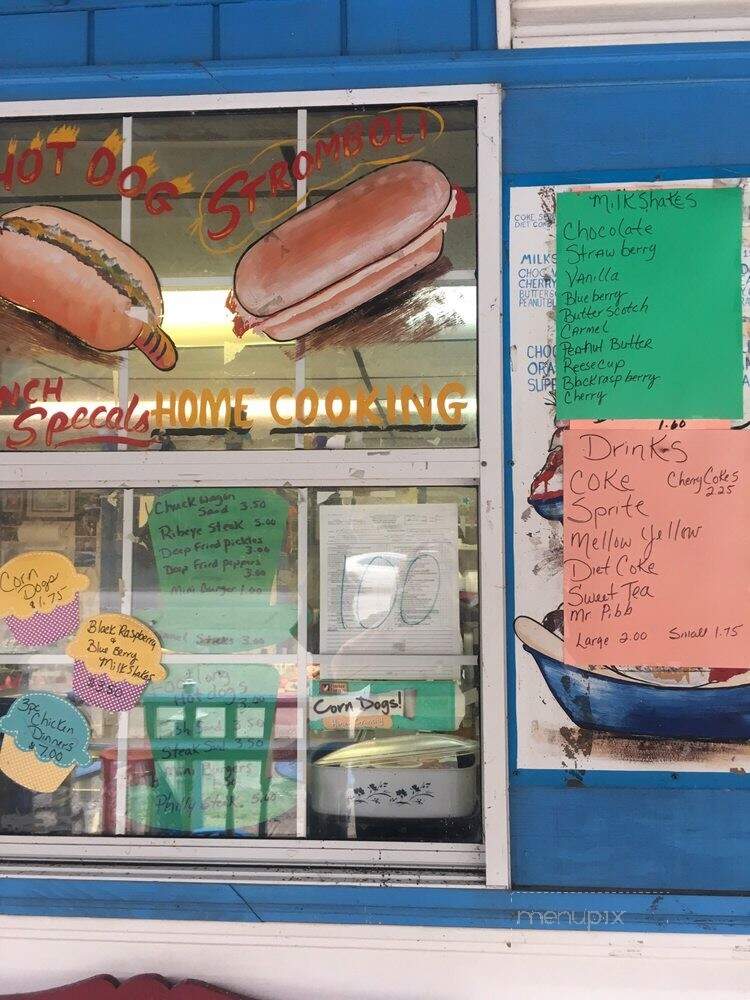 HOT DOG
STROMBOLI
Specals
HOME COOKING
Chuck Wagon
Sand 3.50
Ribeye Steak 5.00
Deep Fried Pickles
3.00
Deep Fried Peppers
3.00
Mini Burger 1.00
Steaks 3.00
Hot dogs
Steak Sand 3.50
Mini Burgers
Philly Steak 5.00
Corn
Dogs
$1.75
Black Raspberry
&
Blue Berry
Milk Shakes
$3.50
3pc
Chicken
Dinners
$7.00
100
Corn Dogs!
MilkShakes
Chocolate
Straw berry
Vanilla
Blueberry
Butter Scotch
Carmel
Peanut Butter
Reese cup
Black rasp berry
Cherry
COKE
DIET COKE
MILKS
CHOC
CHERRY
BUTTERS
PEANUT BU
CHOC
ORA
SUPE
1.60
Drinks
Coke
Cherry Cokes
2.25
Sprite
Mellow Yellow
Diet Coke
Sweet Tea
Mr Pibb
Large 2.00 Small 1.75
menupix